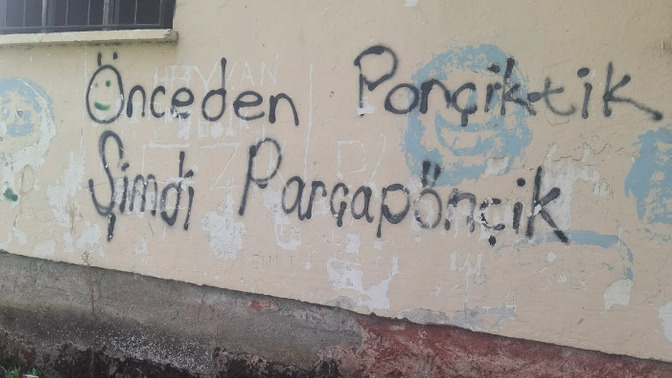 Önceden Ponçiktik
Şimdi Parçapönçik
HAYVAN